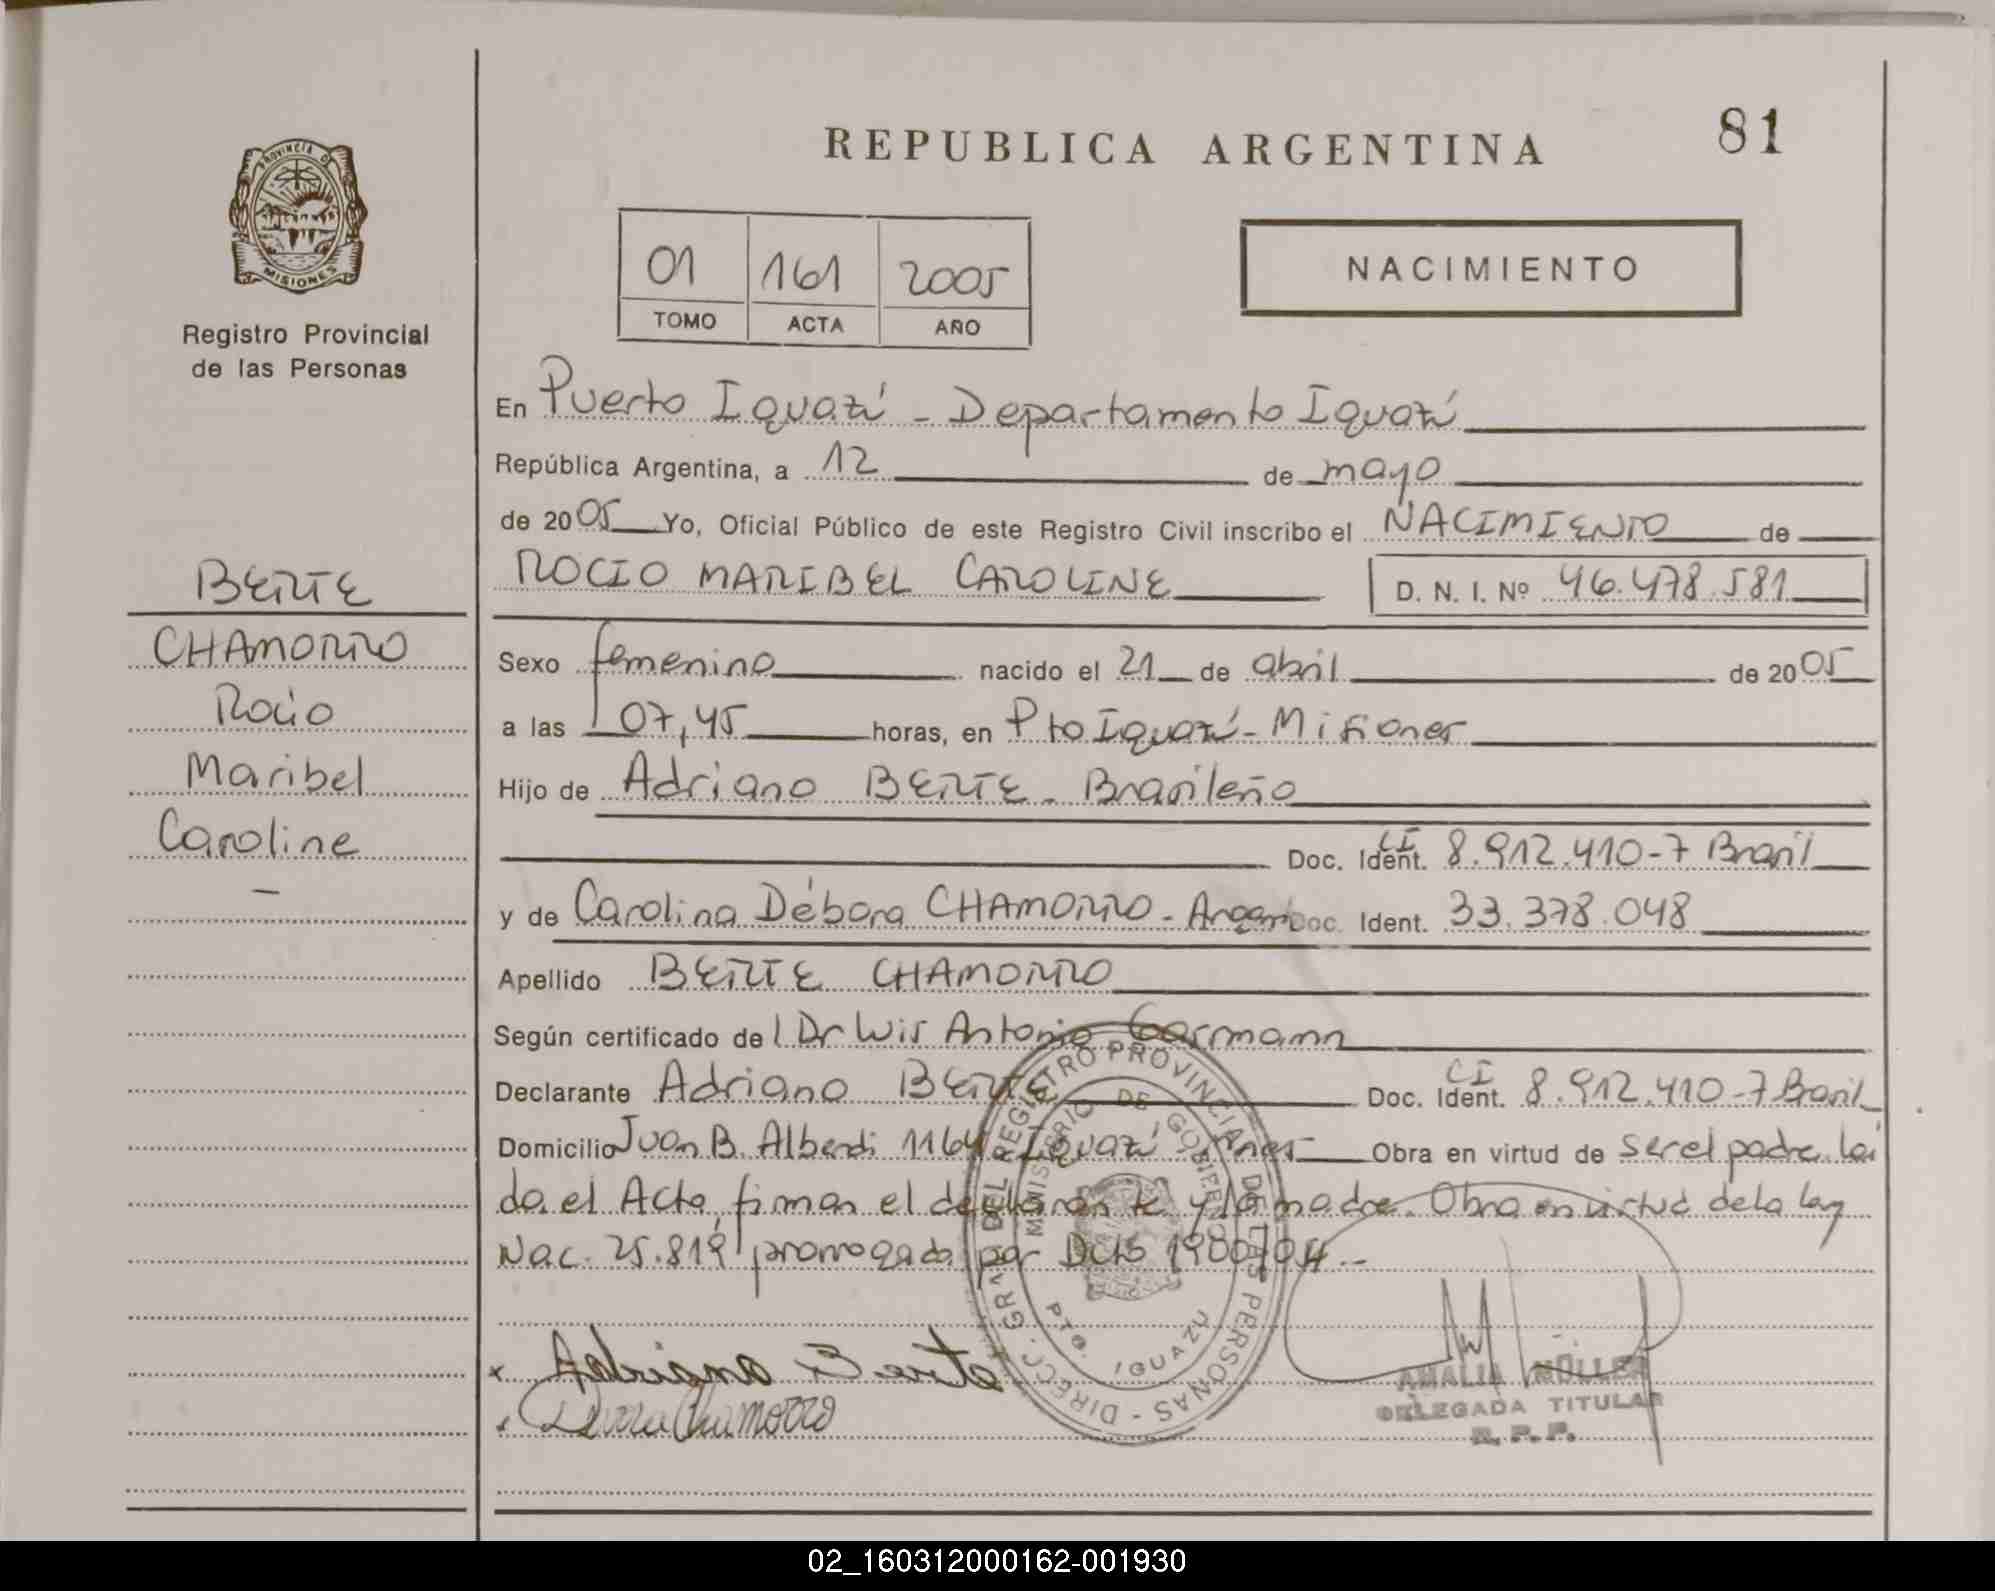 REPUBLICA ARGENTINA
81
PROVINCIA DE
MISIONES
Registro Provincial
de las Personas
01 161 2005
TOMO ACTA AÑO
NACIMIENTO
En Puerto Iguazú - Departamento Iguazú
República Argentina, a 12 de mayo
de 2005 Yo, Oficial Público de este Registro Civil inscribo el NACIMIENTO de
ROCIO MARIBEL CAROLINE D. N. I. Nº 46.478.581
BERTE
CHAMORRO
Rocio
Maribel
Caroline
-
Sexo femenino nacido el 21 de abril de 2005
a las 07,45 horas, en Pto Iguazú - Misiones
Hijo de Adriano BERTE - Brasileño
Doc. Ident. CI 8.912.410-7 Brasil
y de Carolina Débora CHAMORRO - Argen Doc. Ident. 33.378.048
Apellido BERTE CHAMORRO
Según certificado del Dr Luis Antonio Garmann
Declarante Adriano BERTE Doc. Ident. CI 8.912.410-7 Brasil
Domicilio Juan B. Alberdi 1164 Iguazú Mnes Obra en virtud de ser el padre. Lei
da el Acta, firman el declarante y la madre. Obra en virtud de la ley
Nac. 25.819 prorrogada por Dcto 1980/04.-
DIRECC. GRAL. DEL REGISTRO PROVINCIAL DE LAS PERSONAS -
MINISTERIO DE GOBIERNO
PTO. IGUAZU
Adriano Berte
Chamorro
AMALIA MÜLLER
DELEGADA TITULAR
R. P. P.
02_160312000162-001930